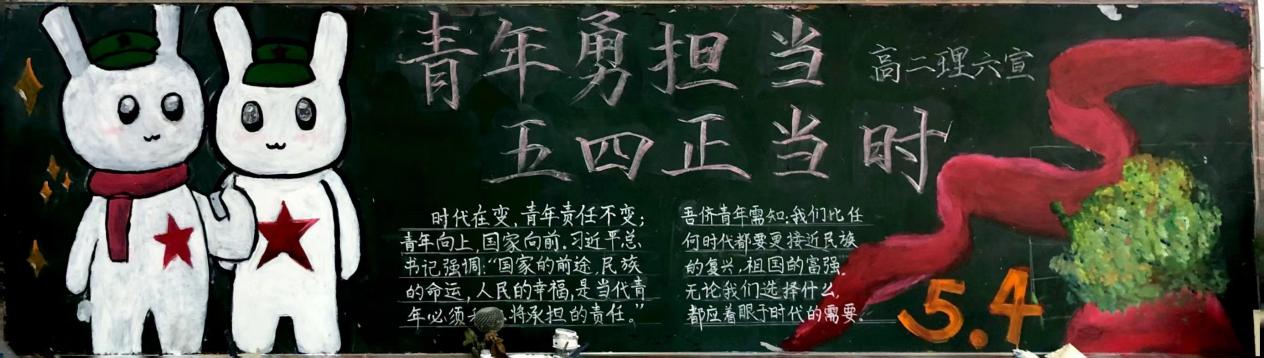 青年勇担当
高二理六宣
五四正当时
时代在变,青年责任不变;
青年向上,国家向前,习近平总
书记强调:“国家的前途,民族
的命运,人民的幸福,是当代青
年必须 将承担的责任。”
吾侪青年需知:我们比任
何时代都要更接近民族
的复兴,祖国的富强。
无论我们选择什么,
都应着眼于时代的需要。
5.4